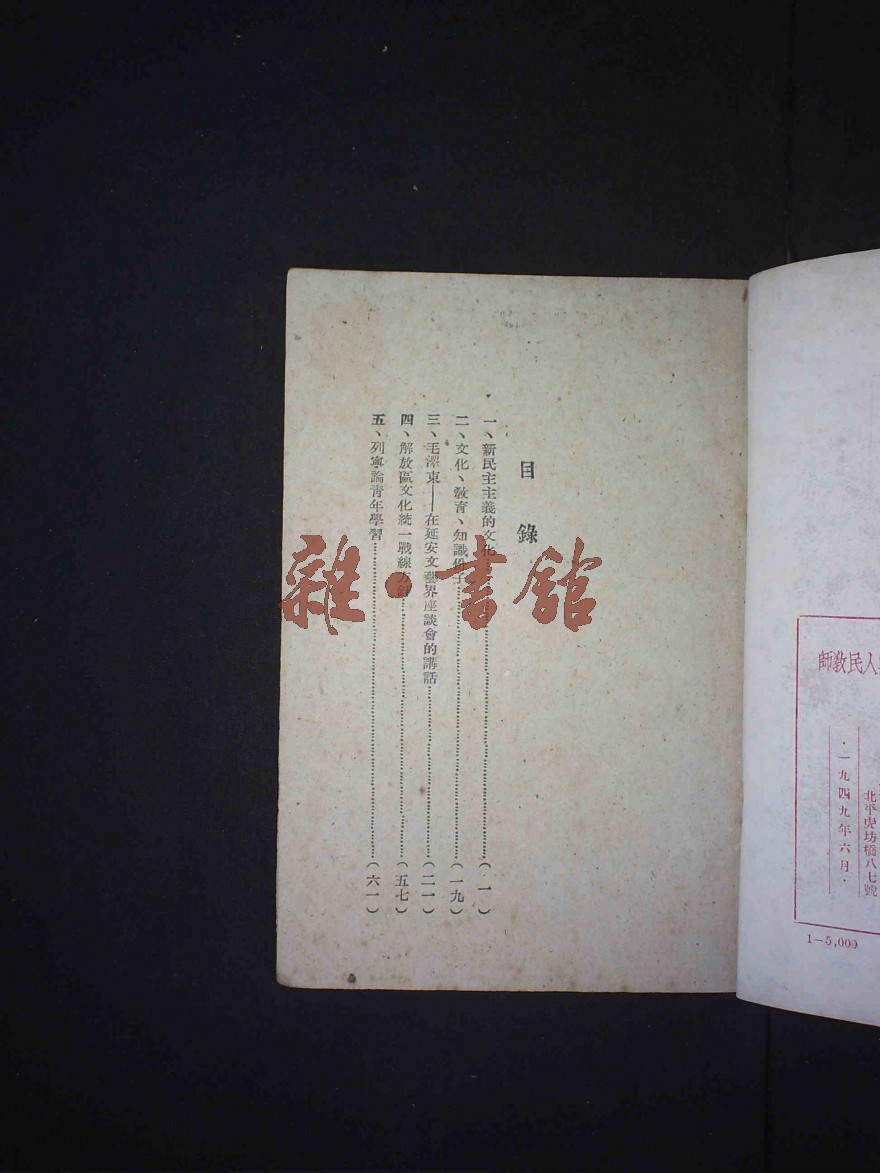 師教民人
北平虎坊橋八七號
·一九四九年六月·
1—5,000
目錄
一、新民主主義的文化……(一)
二、文化、敎育、知識份子……(一九)
三、毛澤東——在延安文藝界座談會的講話……(二一)
四、解放區文化統一戰線方針……(五七)
五、列寧論靑年學習……(六一)
雜·書館